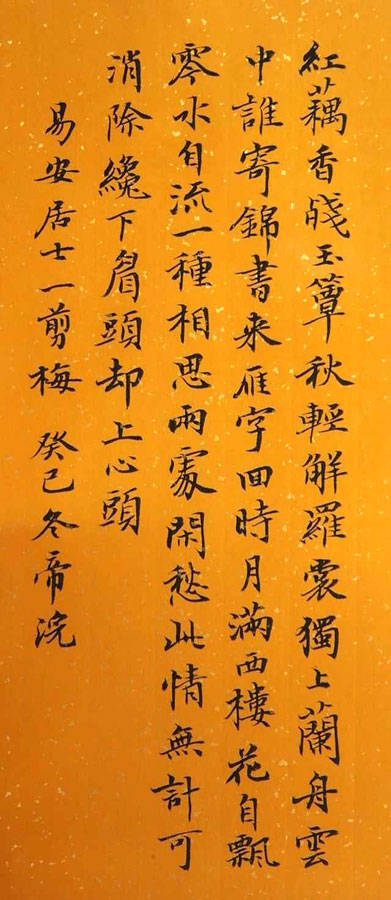 紅藕香殘玉簟秋輕解羅裳獨上蘭舟雲
中誰寄錦書来雁字回時月滿西樓花自飄
零水自流一種相思兩處閑愁此情無計可
消除纔下眉頭却上心頭
易安居士一剪梅 癸巳冬帝浣